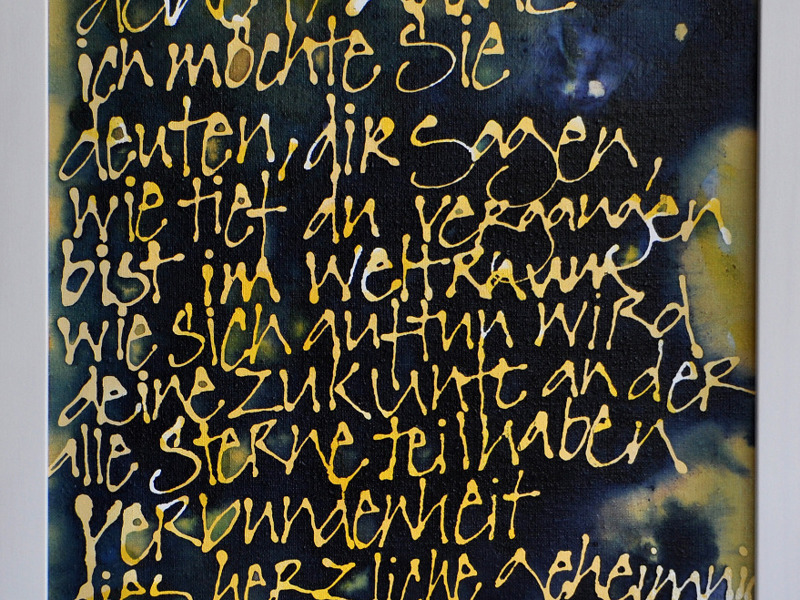 ich möchte Sie
deuten, dir sagen,
wie tief du vergangen
bist im weltraum
wie sich auftun wird
deine zukunft an der
alle Sterne teilhaben
verbundenheit
dies herzliche geheimni